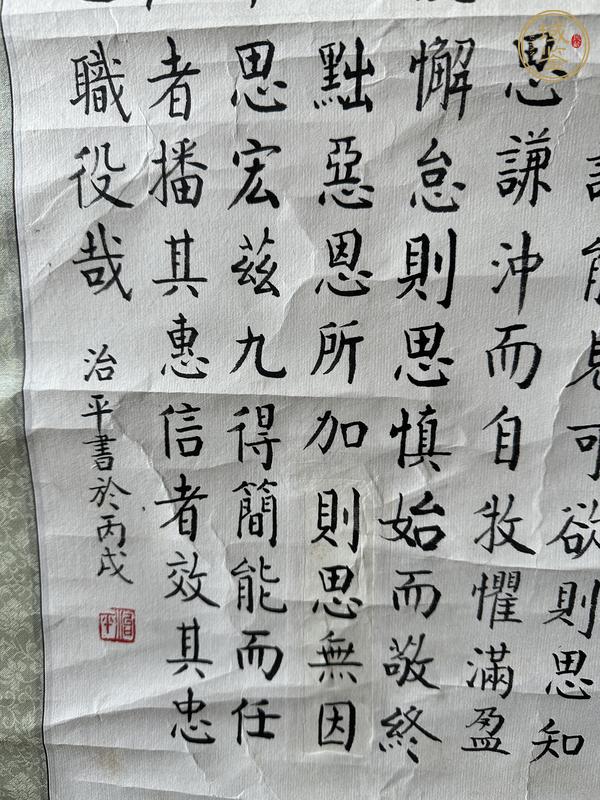 能見可欲則思知
思謙沖而自牧懼滿盈
懈怠則思慎始而敬終
黜惡恩所加則思無因
思宏茲九得簡能而任
者播其惠信者效其忠
職役哉
治平書於丙戌